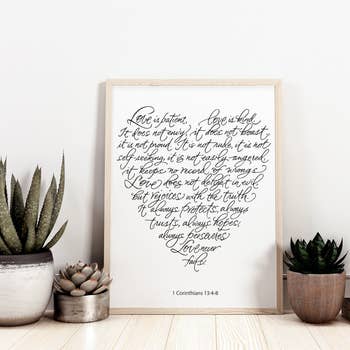 Love is patient, love is kind.
It does not envy, it does not boast,
it is not proud. It is not rude, it is not
self-seeking, it is not easily angered,
it keeps no record of wrongs.
Love does not delight in evil
but rejoices with the truth.
It always protects, always
trusts, always hopes,
always perseveres.
Love never
fails.
1 Corinthians 13:4-8